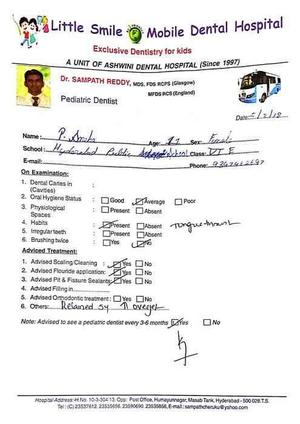 Little Smile Mobile Dental Hospital
Exclusive Dentistry for kids
A UNIT OF ASHWINI DENTAL HOSPITAL (Since 1997)
Dr. SAMPATH REDDY, MDS, FDS RCPS (Glasgow)
MFDS RCS (England)
Pediatric Dentist
Date:
Name: P. Age: 11 Sex: Female
School: Hyderabad Public School Class: VI E
E-mail: Phone:
On Examination:
1. Dental Caries in :
(Cavities)
2. Oral Hygiene Status : Good Average Poor
3. Physiological : Present Absent
Spaces
4. Habits : Present Absent Tongue thrust
5. Irregular teeth : Present Absent
6. Brushing twice : Yes No
Advised Treatment:
1. Advised Scaling/Cleaning : Yes No
2. Advised Flouride application: Yes No
3. Advised Pit & Fissure Sealants: Yes No
4. Advised Filling in
5. Advised Orthodontic treatment : Yes No
6. Others:
Note: Advised to see a pediatric dentist every 3-6 months Yes No
Hospital Address: H.No. 10-3-304 13, Opp: Post Office, Humayunnagar, Masab Tank, Hyderabad - 500 028 T.S.
Tel : (C) 23537612, 23535656, 23590690, 23535858, E-mail : sampathcheruku@yahoo.com